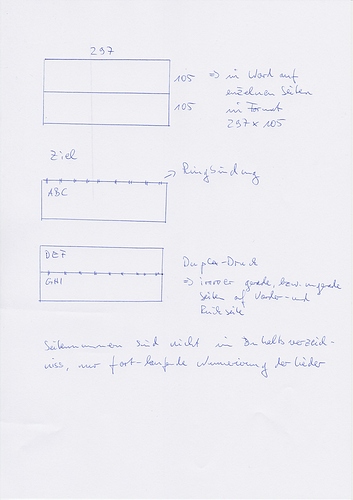 297
105 => in Word auf
einzelnen Seiten
105 im Format
297 x 105
Ziel
-> Ringbindung
ABC
DEF
Duplex-Druck
GHI => immer gerade, bzw. ungerade
Seiten auf Vorder- und
Rückseite
Seitennummern sind nicht im Inhaltsverzeich-
niss, nur fort-laufende Nummerierung der Lieder